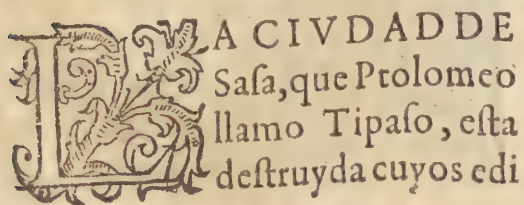 LA CIVDAD DE
Saſa, que Ptolomeo
llamo Tipaſo, eſta
deſtruyda cuyos edi